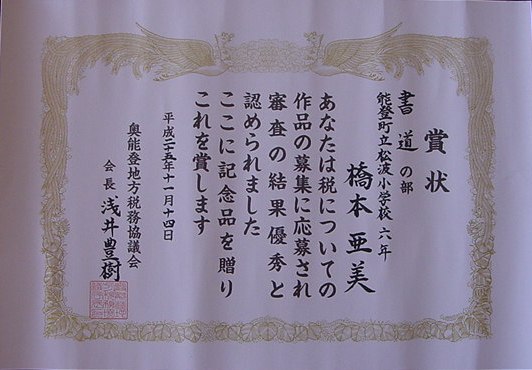 賞状
書道の部
能登町立松波小学校 六年
橋本亜美
あなたは税についての
作品の募集に応募され
審査の結果優秀と
認められました
ここに記念品を贈り
これを賞します
平成二十五年十一月十四日
奥能登地方税務協議会
会長 浅井豊樹